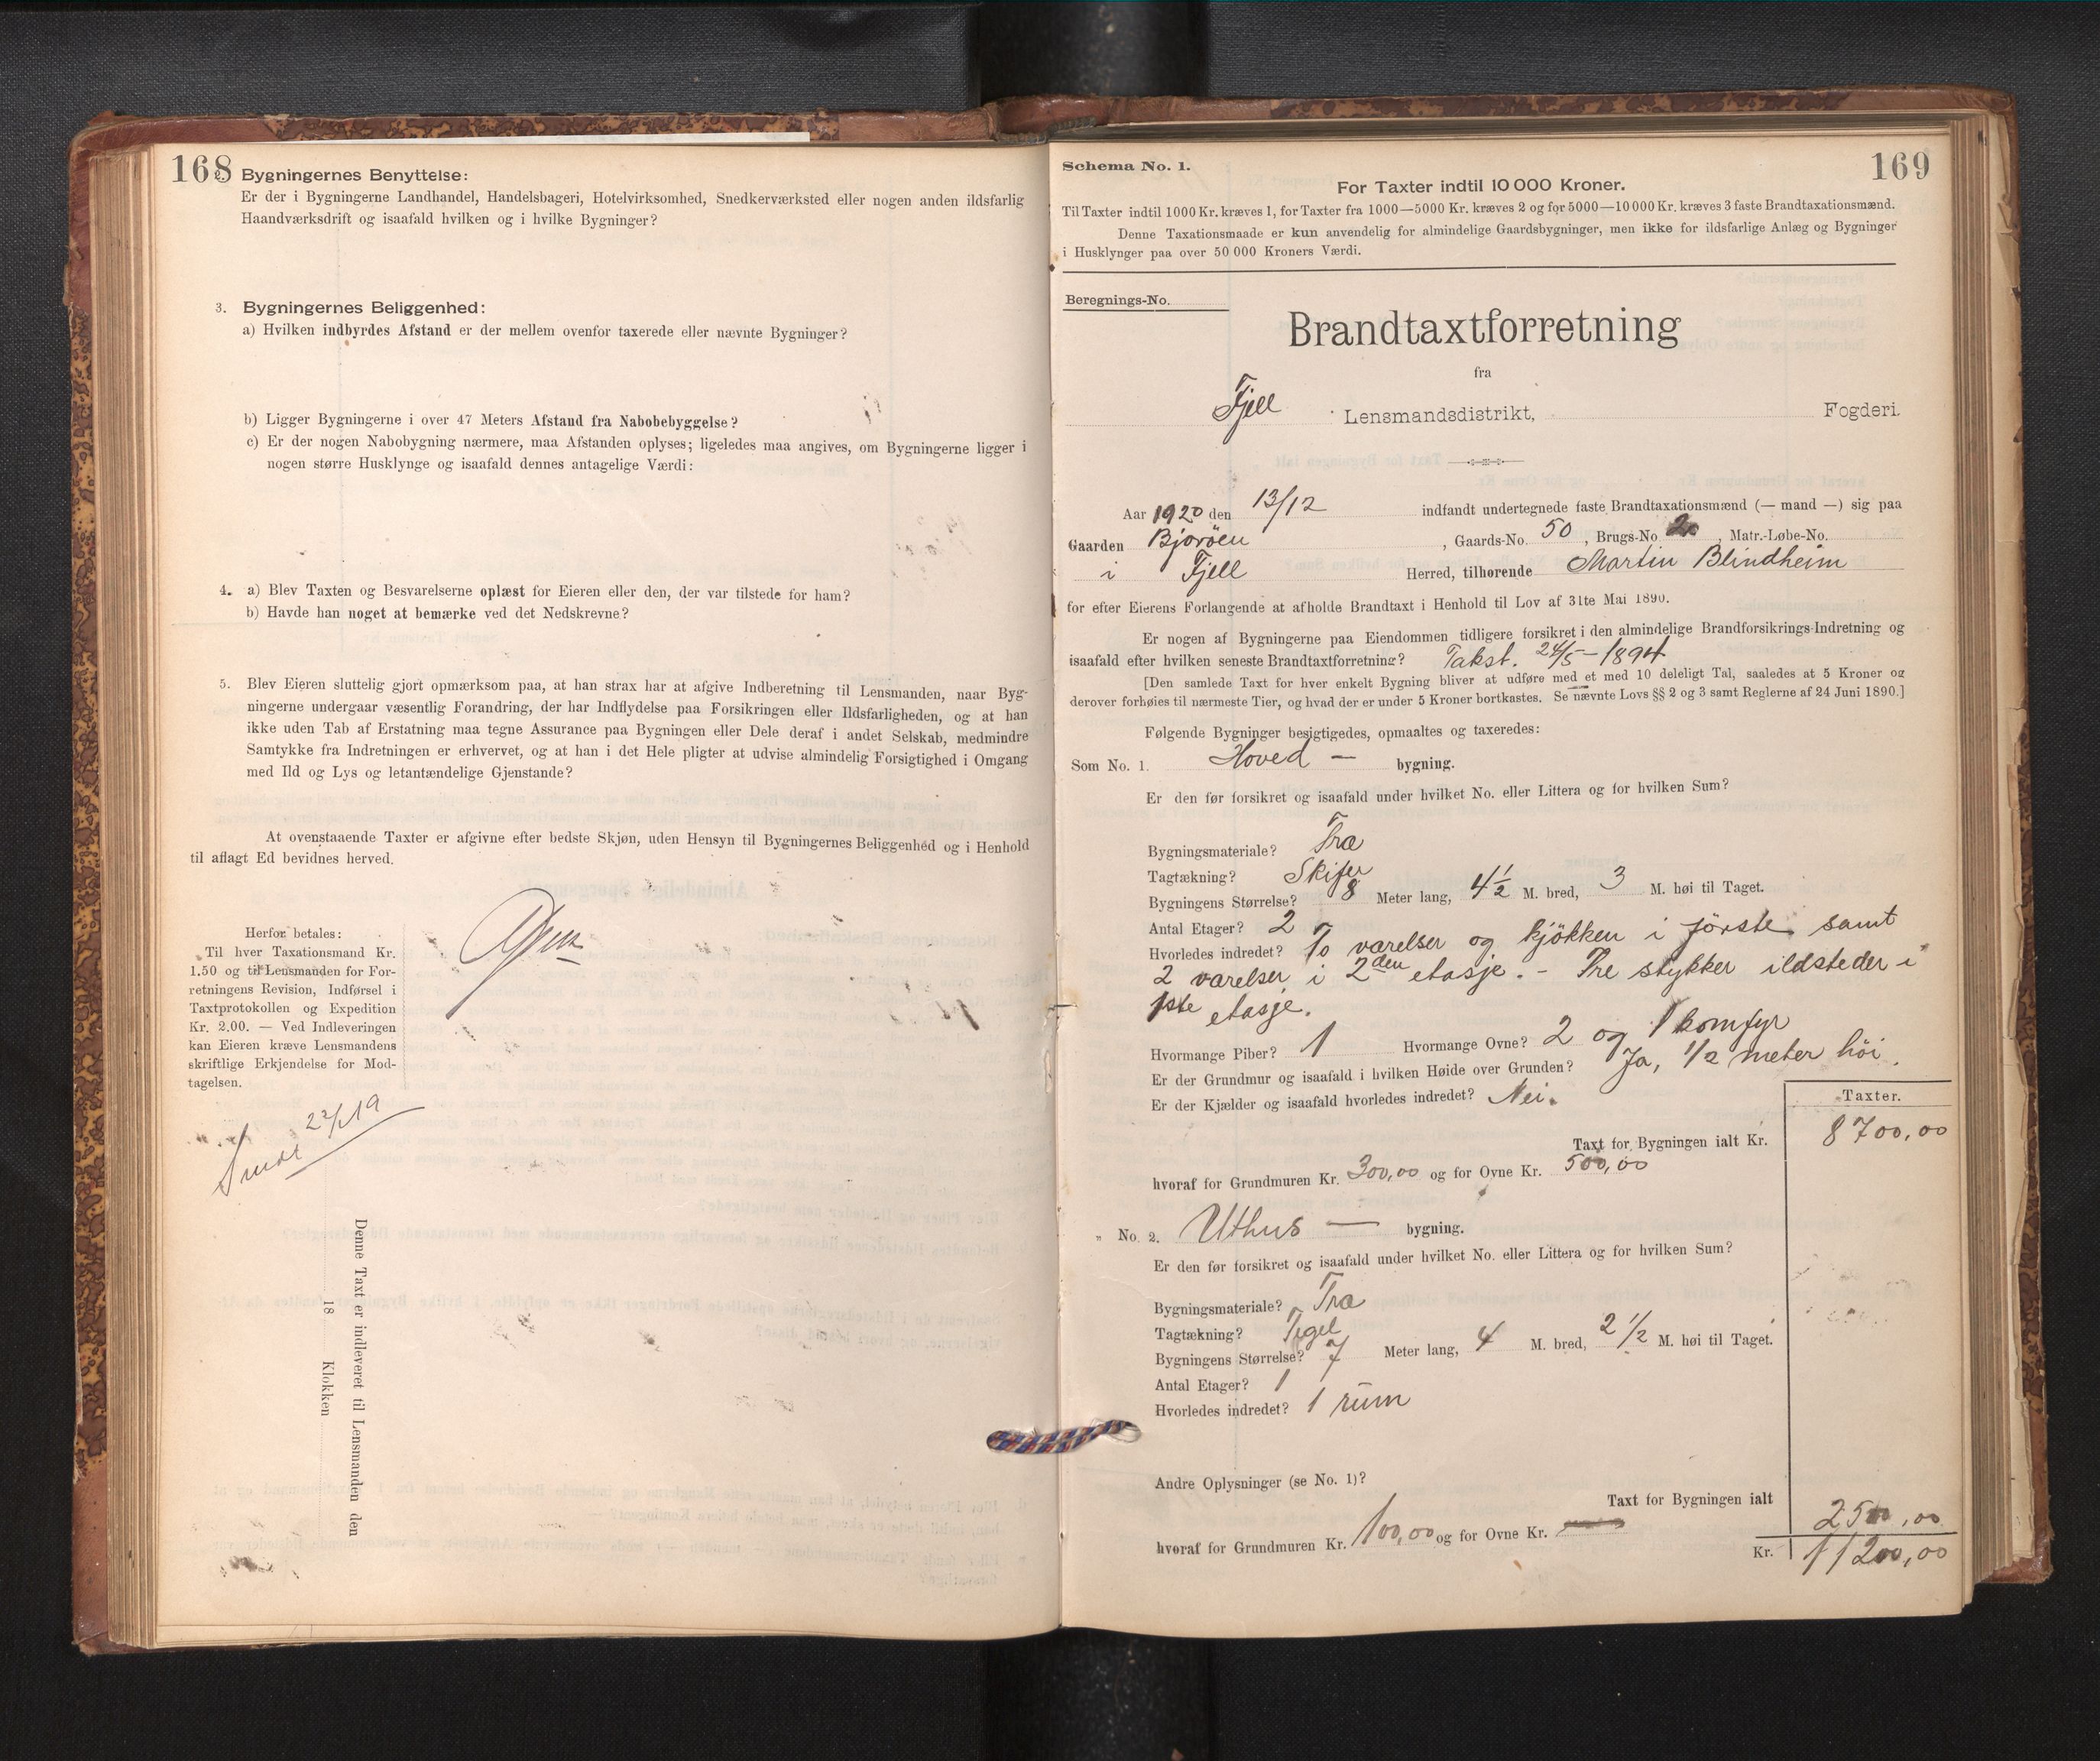 168
2. Bygningernes Benyttelse:
Er der i Bygningerne Landhandel, Handelsbageri, Hotelvirksomhed, Snedkerværksted eller nogen anden ildsfarlig
Haandværksdrift og isaafald hvilken og i hvilke Bygninger?
3. Bygningernes Beliggenhed:
a) Hvilken indbyrdes Afstand er der mellem ovenfor taxerede eller nævnte Bygninger?
b) Ligger Bygningerne i over 47 Meters Afstand fra Nabobebyggelse?
c) Er der nogen Nabobygning nærmere, maa Afstanden oplyses; ligeledes maa angives, om Bygningerne ligger i
nogen større Husklynge og isaafald dennes antagelige Værdi:
4. a) Blev Taxten og Besvarelserne oplæst for Eieren eller den, der var tilstede for ham?
b) Havde han noget at bemærke ved det Nedskrevne?
5. Blev Eieren sluttelig gjort opmærksom paa, at han strax har at afgive Indberetning til Lensmanden, naar Byg-
ningerne undergaar væsentlig Forandring, der har Indflydelse paa Forsikringen eller Ildsfarligheden, og at han
ikke uden Tab af Erstatning maa tegne Assurance paa Bygningen eller Dele deraf i andet Selskab, medmindre
Samtykke fra Indretningen er erhvervet, og at han i det Hele pligter at udvise almindelig Forsigtighed i Omgang
med Ild og Lys og letantændelige Gjenstande?
At ovenstaaende Taxter er afgivne efter bedste Skjøn, uden Hensyn til Bygningernes Beliggenhed og i Henhold
til aflagt Ed bevidnes herved.
Herfor betales:
Til hver Taxationsmand Kr.
1.50 og til Lensmanden for For-
retningens Revision, Indførsel i
Taxtprotokollen og Expedition
Kr. 2.00. — Ved Indleveringen
kan Eieren kræve Lensmandens
skriftlige Erkjendelse for Mod-
tagelsen.
Denne Taxt er indleveret til Lensmanden den
18 Klokken
169
Schema No. 1.
For Taxter indtil 10 000 Kroner.
Til Taxter indtil 1000 Kr. kræves 1, for Taxter fra 1000—5000 Kr. kræves 2 og for 5000—10 000 Kr. kræves 3 faste Brandtaxationsmænd.
Denne Taxationsmaade er kun anvendelig for almindelige Gaardsbygninger, men ikke for ildsfarlige Anlæg og Bygninger
i Husklynger paa over 50 000 Kroners Værdi.
Beregnings-No.
Brandtaxtforretning
fra
Fjell Lensmandsdistrikt, Fogderi.
Aar 1920 den 13/12 indfandt undertegnede faste Brandtaxationsmænd (— mand —) sig paa
Gaarden Bjorøen, Gaards-No. 50, Brugs-No. 2, Matr.-Løbe-No.
i Fjell Herred, tilhørende Martin Blindheim
for efter Eierens Forlangende at afholde Brandtaxt i Henhold til Lov af 31te Mai 1890.
Er nogen af Bygningerne paa Eiendommen tidligere forsikret i den almindelige Brandforsikrings-Indretning og
isaafald efter hvilken seneste Brandtaxtforretning? Takst. 24/5 - 1894
[Den samlede Taxt for hver enkelt Bygning bliver at udføre med et med 10 deleligt Tal, saaledes at 5 Kroner og
derover forhøies til nærmeste Tier, og hvad der er under 5 Kroner bortkastes. Se nævnte Lovs §§ 2 og 3 samt Reglerne af 24 Juni 1890.]
Følgende Bygninger besigtigedes, opmaaltes og taxeredes:
Som No. 1. Hoved — bygning.
Er den før forsikret og isaafald under hvilket No. eller Littera og for hvilken Sum?
Bygningsmateriale? Træ
Tagtækning? Skifer
Bygningens Størrelse? 8 Meter lang, 4½ M. bred, 3 M. høi til Taget.
Antal Etager? 2
Hvorledes indredet? To værelser og kjökken i förste samt
2 værelser i 2den etasje. - Tre stykker ildsteder i
1ste etasje.
Hvormange Piber? 1 Hvormange Ovne? 2 og 1 komfyr
Er der Grundmur og isaafald i hvilken Høide over Grunden? Ja, 1/2 meter höi.
Er der Kjælder og isaafald hvorledes indredet? Nei.
Taxter.
Taxt for Bygningen ialt Kr. 8700,00
hvoraf for Grundmuren Kr. 300,00 og for Ovne Kr. 500,00
" No. 2. Uthus — bygning.
Er den før forsikret og isaafald under hvilket No. eller Littera og for hvilken Sum?
Bygningsmateriale? Træ
Tagtækning? Tegel
Bygningens Størrelse? 7 Meter lang, 4 M. bred, 2 1/2 M. høi til Taget.
Antal Etager? 1
Hvorledes indredet? 1 rüm
Andre Oplysninger (se No. 1)?
Taxt for Bygningen ialt 2500,00
hvoraf for Grundmuren Kr. 100,00 og for Ovne Kr.
Kr. 11200,00